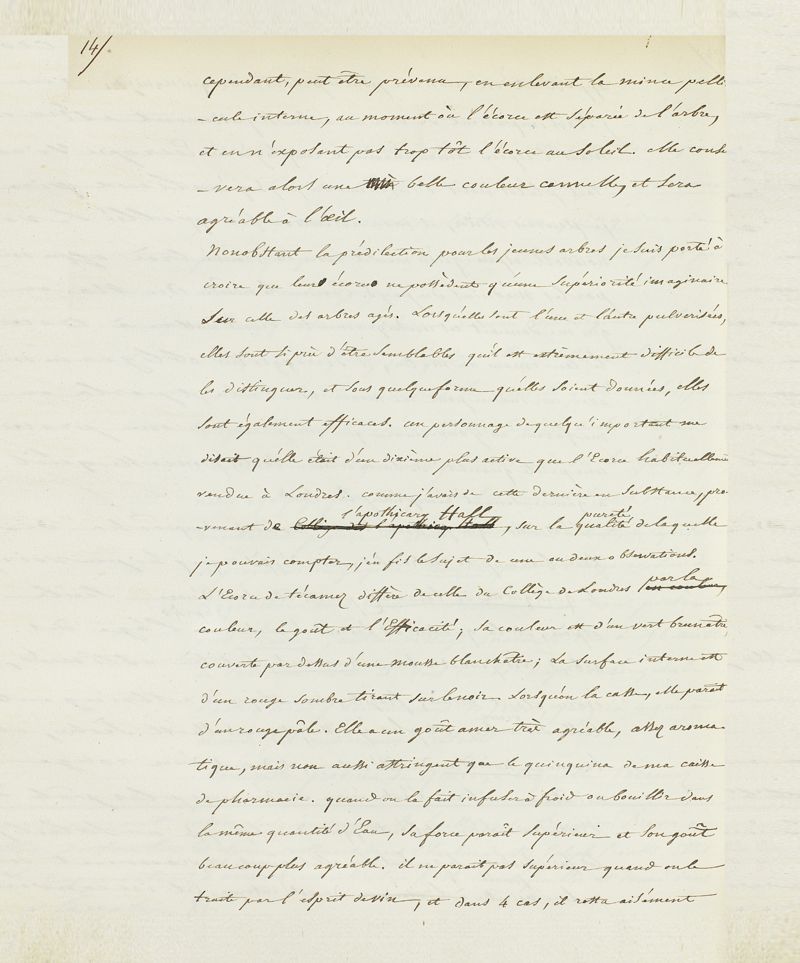 14/.
cependant, peut être prévenu, en enlevant la mince pelli
-cule interne, au moment où l'écorce est séparée de l'arbre,
et en n'exposant pas trop tôt l'écorce au Soleil. elle conse
-vera alors une belle couleur cannelle, et sera
agréable à l'œil.
Nonobstant la prédilection pour les jeunes arbres je suis porté à
croire que leur écorce ne possèdent qu'une Supériorité imaginaire
Sur celle des arbres agés. Lorsqu'elles sont l'une et l'autre pulverisées,
elles sont si près d'être semblables qu'il est extrêmement difficile de
les distinguer, et sous quelque forme qu'elles soient données, elles
sont également efficaces. un personnage de quelqu'important me
disait qu'elle était d'un dixième plus active que l'Ecorce habituellement
vendue à Londres. comme j'avais de cette dernière en Substance, pro-
l'apothicary Hall pureté
-venant de Collège des l'apothicary Hall, sur la qualité de laquelle
je pouvais compter, j'en fis le sujet de une ou deux observations.
L'Ecorce de técamez diffère de celle du Collège de Londres par la
couleur, le goût et l'Efficacité; sa couleur est d'un vert brunatre,
couverte par dessus d'une mousse blanchâtre; La surface interne est
d'un rouge sombre tirant sur le noir. Lorsqu'on la casse, elle parait
d'un rouge pâle. Elle a un goût amer très agréable, assez aroma
tique, mais non aussi astringent que le quinquina de ma caisse
de pharmacie. quand on la fait infuser à froid ou bouillir dans
la même quantité d'Eau, sa force paraît supérieur et son goût
beaucoup plus agréable. il ne parait pas supérieur quand on le
traite par l'esprit de vin, et dans 4 cas, il resta aisément